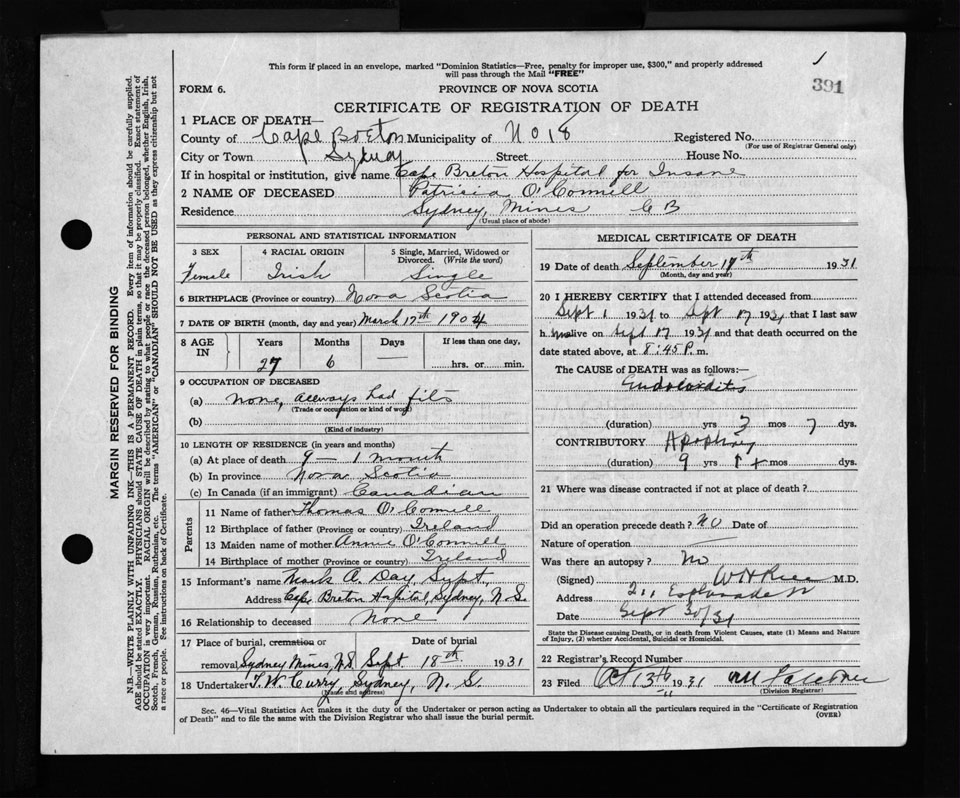 This form if placed in an envelope, marked "Dominion Statistics—Free, penalty for improper use, $300," and properly addressed
will pass through the Mail "FREE"
391
FORM 6.
PROVINCE OF NOVA SCOTIA
CERTIFICATE OF REGISTRATION OF DEATH
1 PLACE OF DEATH—
County of Cape Breton Municipality of No 18 Registered No.
(For use of Registrar General only)
City or Town Sydney Street House No.
If in hospital or institution, give name Cape Breton Hospital for Insane
2 NAME OF DECEASED Patricia O'Connell
Residence Sydney Mines C B
(Usual place of abode)
PERSONAL AND STATISTICAL INFORMATION
3 SEX 4 RACIAL ORIGIN 5 Single, Married, Widowed or Divorced. (Write the word)
Female Irish Single
6 BIRTHPLACE (Province or country) Nova Scotia
7 DATE OF BIRTH (month, day and year) March 17th 1904
8 AGE IN Years Months Days If less than one day,
27 6 — hrs. or min.
9 OCCUPATION OF DECEASED
(a) None, allways had fits
(Trade or occupation or kind of work)
(b)
(Kind of industry)
10 LENGTH OF RESIDENCE (in years and months)
(a) At place of death 9 — 1 month
(b) In province Nova Scotia
(c) In Canada (if an immigrant) Canadian
Parents
11 Name of father Thomas O'Connell
12 Birthplace of father (Province or country) Ireland
13 Maiden name of mother Annie O'Connell
14 Birthplace of mother (Province or country) Ireland
15 Informant's name Mark A. Day, Supt,
Address Cape Breton Hospital, Sydney, N.S.
16 Relationship to deceased None
17 Place of burial, cremation or removal Sydney Mines, N.S. Date of burial Sept 18th 1931
18 Undertaker T. W. Curry, Sydney, N.S.
(Name and address)
MEDICAL CERTIFICATE OF DEATH
19 Date of death September 17th 1931
(Month, day and year)
20 I HEREBY CERTIFY that I attended deceased from
Sept 1 1931 to Sept 17 1931 that I last saw
h alive on Sept 17 1931 and that death occurred on the
date stated above, at 8:45 P. m.
The CAUSE OF DEATH was as follows:—
Endocarditis
(duration) yrs 3 mos 7 dys.
CONTRIBUTORY
(duration) 9 yrs mos dys.
21 Where was disease contracted if not at place of death?
Did an operation precede death? NO Date of
Nature of operation —
Was there an autopsy? No
(Signed) M.D.
Address Esplanade
Date Sept 30/31
State the Disease causing Death, or in death from Violent Causes, state (1) Means and Nature
of Injury, (2) whether Accidental, Suicidal or Homicidal.
22 Registrar's Record Number
23 Filed Oct 13th 1931
(Division Registrar)
Sec. 46—Vital Statistics Act makes it the duty of the Undertaker or person acting as Undertaker to obtain all the particulars required in the "Certificate of Registration
of Death" and to file the same with the Division Registrar who shall issue the burial permit.
(OVER)
MARGIN RESERVED FOR BINDING
N.B.—WRITE PLAINLY WITH UNFADING INK—THIS IS A PERMANENT RECORD. Every item of information should be carefully supplied.
AGE should be stated EXACTLY. PHYSICIANS should STATE CAUSE OF DEATH in plain terms, so that it may be properly classified. Exact statement of
OCCUPATION is very important. RACIAL ORIGIN will be described by stating to what people or race the deceased person belonged, whether English, Irish,
Scotch, French, German, Russian, Ruthenian, etc. The terms "AMERICAN" or "CANADIAN" SHOULD NOT BE USED as they express citizenship but not
a race or people. See instructions on back of Certificate.